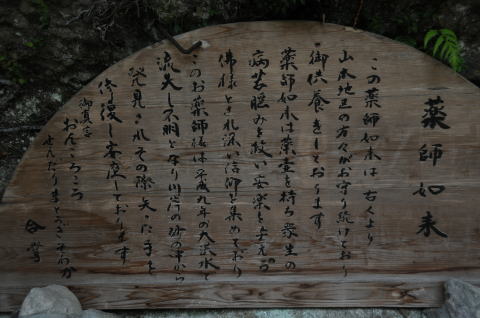 薬師如来
この薬師如来は古くより
山本地区の方々がお守り続けており
御供養をしております
薬師如来は薬壺を持ち衆生の
病苦悩みを救い安楽を与える
佛様とされ深い信仰を集めており
このお薬師様は平成九年の大洪水で
流失し不明となり川岸の砂の中から
発見されその際失った手を
修復し安座しております
御真言
おんころころ
せんだりまとうぎそわか
合掌